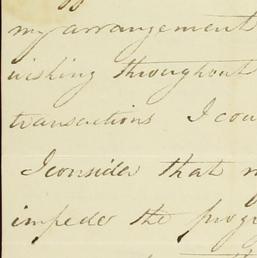 my arrangement
wishing throughout
transactions I cou
I consider that
impede the progr